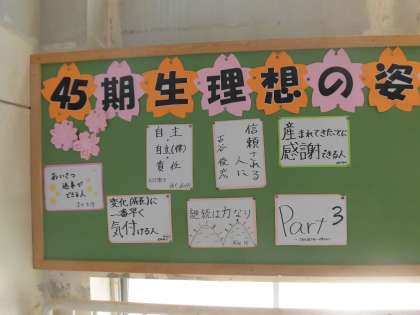 45期生理想の姿
自主
自立(律)
責任
信頼される
人に
産まれてきたことに
感謝できる人
あいさつ
返事が
できる人
変化(成長)に
一番早く
気付ける人
継続は力なり
Part 3